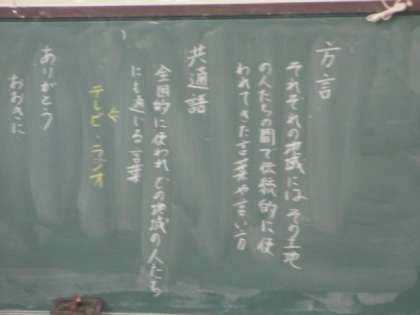 方言
それぞれの地域には その土地
の人たちの間で伝統的に使
われてきた言葉や言い方
共通語
全国的に使われどの地域の人たち
にも通じる言葉
⇐
テレビ・ラジオ
ありがとう
おおきに